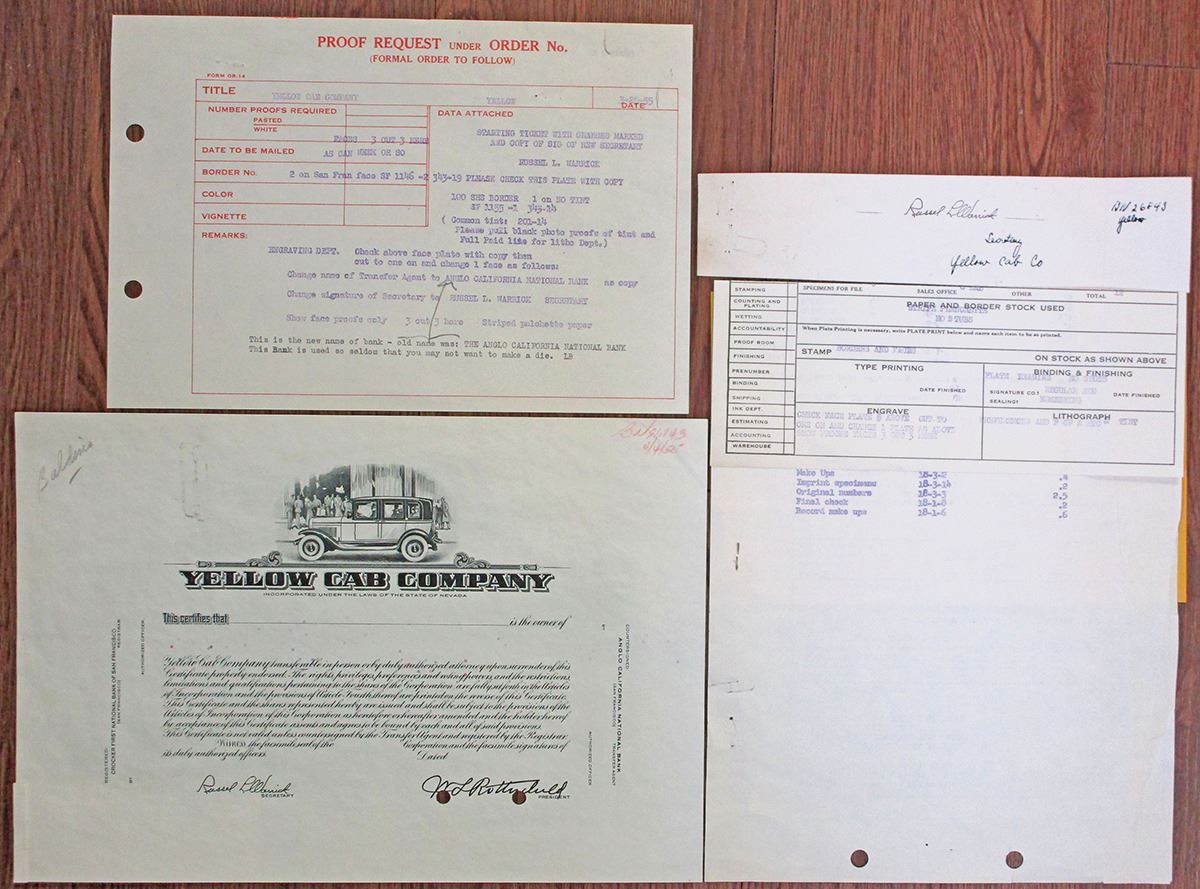 PROOF REQUEST UNDER ORDER No.
(FORMAL ORDER TO FOLLOW)
FORM OR.14
TITLE YELLOW CAB COMPANY YELLOW
DATE
NUMBER PROOFS REQUIRED
PASTED
WHITE
FACES 3 OUT 3 HERE
DATE TO BE MAILED AS CAN WEEK OR SO
BORDER No. 2 on San Fran face SF 1146 -2 343-19 PLEASE CHECK THIS PLATE WITH COPY
COLOR
VIGNETTE
DATA ATTACHED
STARTING TICKET WITH CHANGES MARKED
AND COPY OF SIG OF NEW SECRETARY
RUSSEL L. WARRICK
100 SHS BORDER 1 on NO TINT
SF 1155 -1 343-14
( Common tint: 201-14
Please pull black photo proofs of tint and
Full Paid line for litho Dept.)
REMARKS:
ENGRAVING DEPT. Check above face plate with copy then
cut to one on and change 1 face as follows:
Change name of Transfer Agent to ANGLO CALIFORNIA NATIONAL BANK as copy
Change signature of Secretary to RUSSEL L. WARRICK SECRETARY
Show face proofs only 3 out 3 here Striped palchette paper
This is the new name of bank - old name was: THE ANGLO CALIFORNIA NATIONAL BANK
This Bank is used so seldom that you may not want to make a die. LB
Russel L Warrick
BN 26843
yellow
Secretary
Yellow Cab Co
STAMPING
COUNTING AND PLATING
WETTING
ACCOUNTABILITY
PROOF ROOM
FINISHING
PRENUMBER
BINDING
SHIPPING
INK DEPT.
ESTIMATING
ACCOUNTING
WAREHOUSE
SPECIMENS FOR FILE SALES OFFICE OTHER TOTAL 12
PAPER AND BORDER STOCK USED
NO STUBS
When Plate Printing is necessary, write PLATE PRINT below and name each item to be so printed.
STAMP BORDERS AND
ON STOCK AS SHOWN ABOVE
TYPE PRINTING
DATE FINISHED
BINDING & FINISHING
NO STUBS
SIGNATURE CO.: REGULAR
SEALING:
DATE FINISHED
ENGRAVE
CHECK FACE PLATE S ABOVE CUT TO
ONE ON AND CHANGE 1 PLATE AS ABOVE
SHOW PROOFS FACES 3 OUT 3 HERE
LITHOGRAPH
TINT
Make Ups 18-3-2 .4
Imprint specimens 18-3-14 .2
Original numbers 18-3-3 2.5
Final check 18-1-8 .2
Record make ups 18-1-6 .6
BN26843
YELLOW CAB COMPANY
INCORPORATED UNDER THE LAWS OF THE STATE OF NEVADA
This certifies that is the owner of
Yellow Cab Company transferable in person or by duly authorized attorney upon surrender of this
Certificate properly endorsed. The rights, privileges, preferences and voting powers, and the restrictions,
limitations and qualifications pertaining to the shares of the Corporation are fully set forth in the Articles
of Incorporation and the provisions of Article Fourth hereof are printed on the reverse of this Certificate.
This Certificate and the shares represented hereby are issued and shall be subject to the provisions of the
Articles of Incorporation of this Corporation as heretofore or hereafter amended and the holder hereof
by acceptance of this Certificate assents and agrees to be bound by each and all of said provisions.
This Certificate is not valid unless countersigned by the Transfer Agent and registered by the Registrar.
Witness the facsimile seal of the Corporation and the facsimile signatures of
its duly authorized officers. Dated
Russel L Warrick
SECRETARY
W L Rothschild
PRESIDENT
REGISTERED:
CROCKER FIRST NATIONAL BANK OF SAN FRANCISCO
(SAN FRANCISCO) REGISTRAR
BY
AUTHORIZED OFFICER
COUNTERSIGNED:
ANGLO CALIFORNIA NATIONAL BANK
(SAN FRANCISCO) TRANSFER AGENT
BY
AUTHORIZED OFFICER